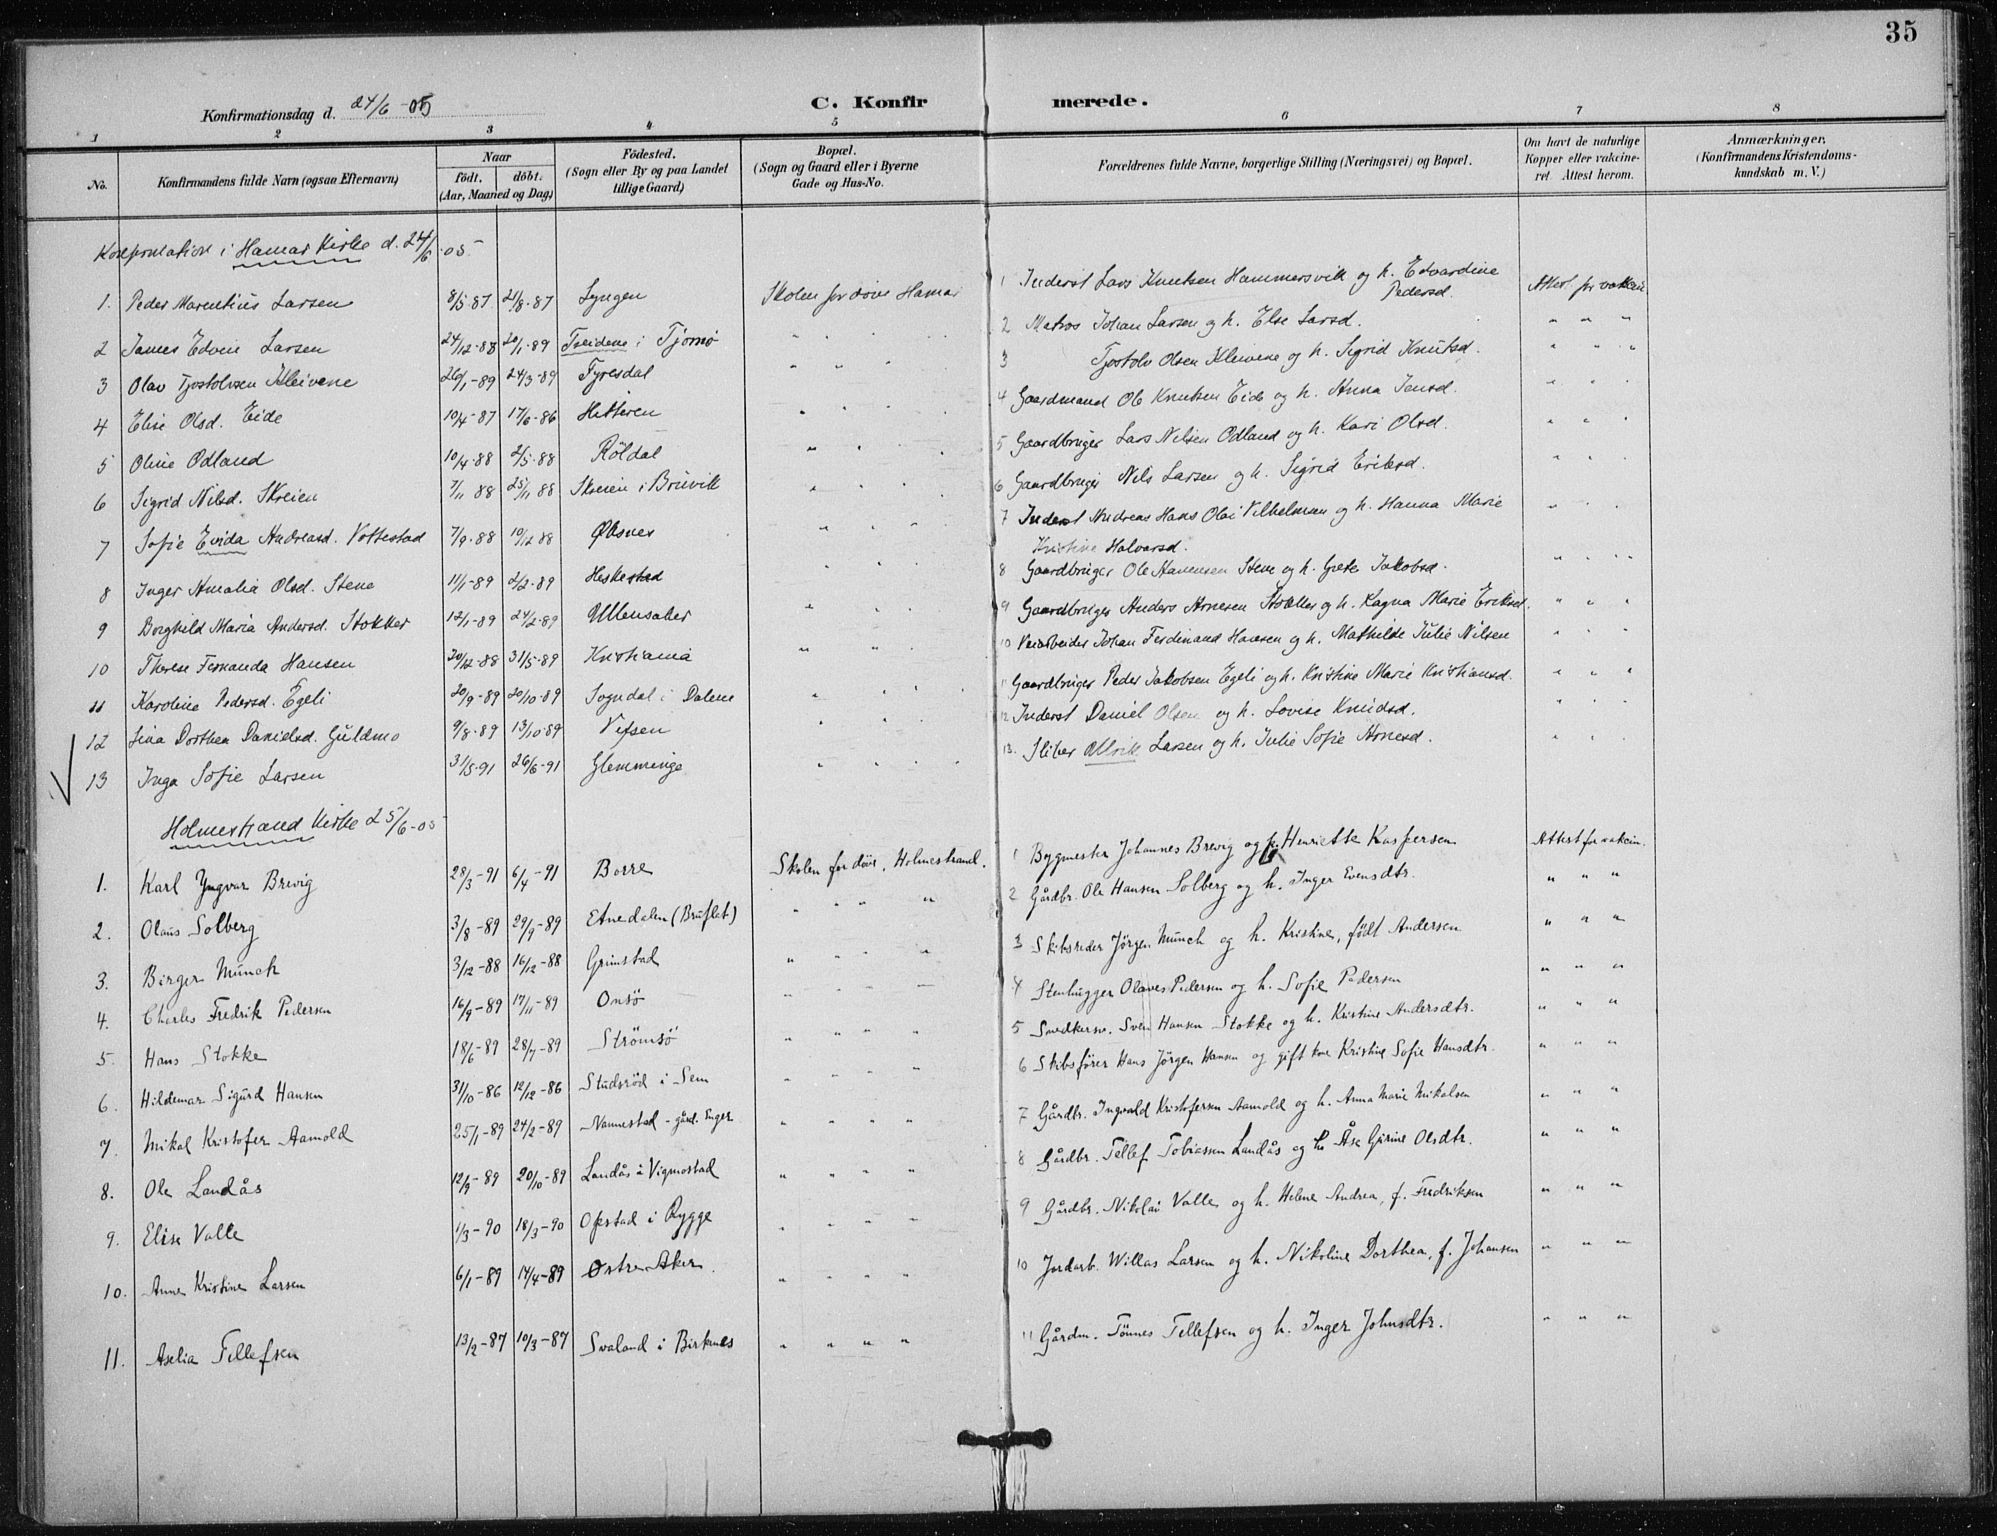 35
Konfirmationsdag d. 24/6 - 05
C. Konfir merede.
1 2 3 4 5 6 7 8
No. Konfirmandens fulde Navn (ogsaa Efternavn) Naar Födt. döbt. (Aar, Maaned og Dag) Födested. (Sogn eller By og paa Landet tillige Gaard) Bopæl. (Sogn og Gaard eller i Byerne Gade og Hus-No. Forældrenes fulde Navne, borgerlige Stilling (Næringsvei) og Bopæl. Om havt de naturlige Kopper eller vakcineret. Attest herom. Anmærkninger. (Konfirmandens Kristendomskundskab m. V.)
i Hamar Kirke d. 24/6 05
1. Peder Marentius Larsen 8/5 87 21/8 - 87 Lyngen Skolen for döve Hamar 1 Inderst Lars Knutsen Hammersvik og h. Edvardine Pedersd. Attest for vakcin.
2 James Edvin Larsen 24/12 - 88 20/1 - 89 Treidene i Tjömö " " " 2 Matros Johan Larsen og h. Else Larsd. " " "
3 Olav Tjostolvsen Kleivene 26/1 - 89 24/3 - 89 Fyresdal " " 3 Tjostolv Olsen Kleivene og h. Sigrid Knutsd. " " "
4 Elise Olsd. Eide 10/4 - 87 17/6 - 86 Hitteren " " " " 4 Gaardmand Ole Knutsen Eide og h. Anna Jensd. " " "
5 Oline Odland 10/4 - 88 2/5 - 88 Röldal " " " 5 Gaardbruger Lars Nilsen Odland og h. Kari Olsd. " " "
6 Sigrid Nilsd. Skreien 7/11 88 25/11 88 Skreien i Bruvik " " " " 6 Gaardbruger Nils Larsen og h. Sigrid Eriksd. " " "
7 Sofie Evida Andreasd. Vottestad 7/9 - 88 10/12 88 Øksnes " " " " 7 Inderst Andreas Hans Olai Vilhelmsen og h. Hanna Marie Kristine Halvorsd. " " "
8 Inger Amalia Olsd. Stene 11/1 - 89 2/2 - 89 Heskestad " " " 8 Gaardbruger Ole Hansen Stene og h. Grete Jakobsd. " " " "
9 Borghild Maria Andersd. Stokker 12/1 - 89 24/2 - 89 Ullensaker " " " 9 Gaardbruger Anders Arnesen Stokker og h. Ragna Marie Eriksd. " " "
10 Therese Fernanda Hansen 20/12 - 88 31/5 - 89 Kristiania " " " 10 Veiarbeider Johan Ferdinand Hansen og h. Mathilde Julie Nilsen " " "
11 Karoline Pedersd. Egeli 20/9 - 89 20/10 - 89 Sogndal i Dalene " " " 11 Gaardbruger Peder Jakobsen Egeli og h. Kristine Marie Kristiansd. " " "
12 Lina Dorthea Danielsd. Guldmo 9/8 - 89 13/10 - 89 Vefsen " " " 12 Inderst Daniel Olsen og h. Lovise Knudsd. " " "
13 Inga Sofie Larsen 31/5 - 91 26/6 - 91 Glemminge " " " 13. Sliber Ullrik Larsen og h. Julie Sofie Arnesd. " " "
Holmestrand Kirke 25/6 - 05
1. Karl Yngvar Brevig 28/3 - 91 6/4 - 91 Borre Skolen for döve, Holmestrand. 1 Bygmester Johannes Brevig og h. Henriette Kaspersen Attest for vakcin.
2. Olaus Solberg 3/8 - 89 29/9 - 89 Etnedalen (Bruflat) " " " " 2 Gårdbr. Ole Hansen Solberg og h. Inger Evensdtr. " " "
3. Birger Munch 3/12 - 88 16/12 - 88 Grimstad " " " " 3 Skibsreder Jörgen Munch og h. Kristine, födt Andersen " " "
4. Charles Fredrik Pedersen 16/9 - 89 17/11 - 89 Onsö " " " " 4 Stenhugger Olaves Pedersen og h. Sofie Pedersen " " "
5. Hans Stokke 18/6 - 89 28/7 - 89 Strömsö " " " " 5 Snedkersv. Sven Hansen Stokke og h. Kristine Andersdtr. " " "
6. Hildemar Sigurd Hansen 31/10 - 86 12/12 - 86 Studsröd i Sem " " " " 6 Skibsförer Hans Jörgen Hansen og gift kone Kristine Sofie Hansdtr. " " "
7. Mikal Kristofer Aamold 25/1 - 89 24/2 - 89 Nannestad - gård. Enger " " " " 7 Gårdbr. Ingvald Kristofersen Aamold og h. Anna Marie Mikalsen " " "
8. Ole Landås 12/9 - 89 20/10 - 89 Landås i Vigmostad " " " " 8 Gårdbr. Tellef Tobiassen Landås og h. Åse Gurine Olsdtr. " " "
9. Elise Valle 1/3 - 90 18/3 - 90 Opstad i Rygge " " " " 9 Gårdbr. Nikolai Valle og h. Helene Andrea, f. Fredriksen " " "
10. Anne Kristine Larsen 6/1 - 89 14/4 - 89 Østre Aker. " " " " 10 Jordarb. Willas Larsen og h. Nikoline Dorthea, f. Johansen " " "
11. Aselia Tellefsen 13/2 - 87 10/3 - 87 Svaland i Birkenes " " " " 11 Gårdm. Tönnes Tellefsen og h. Inger Johnsdtr. " " "